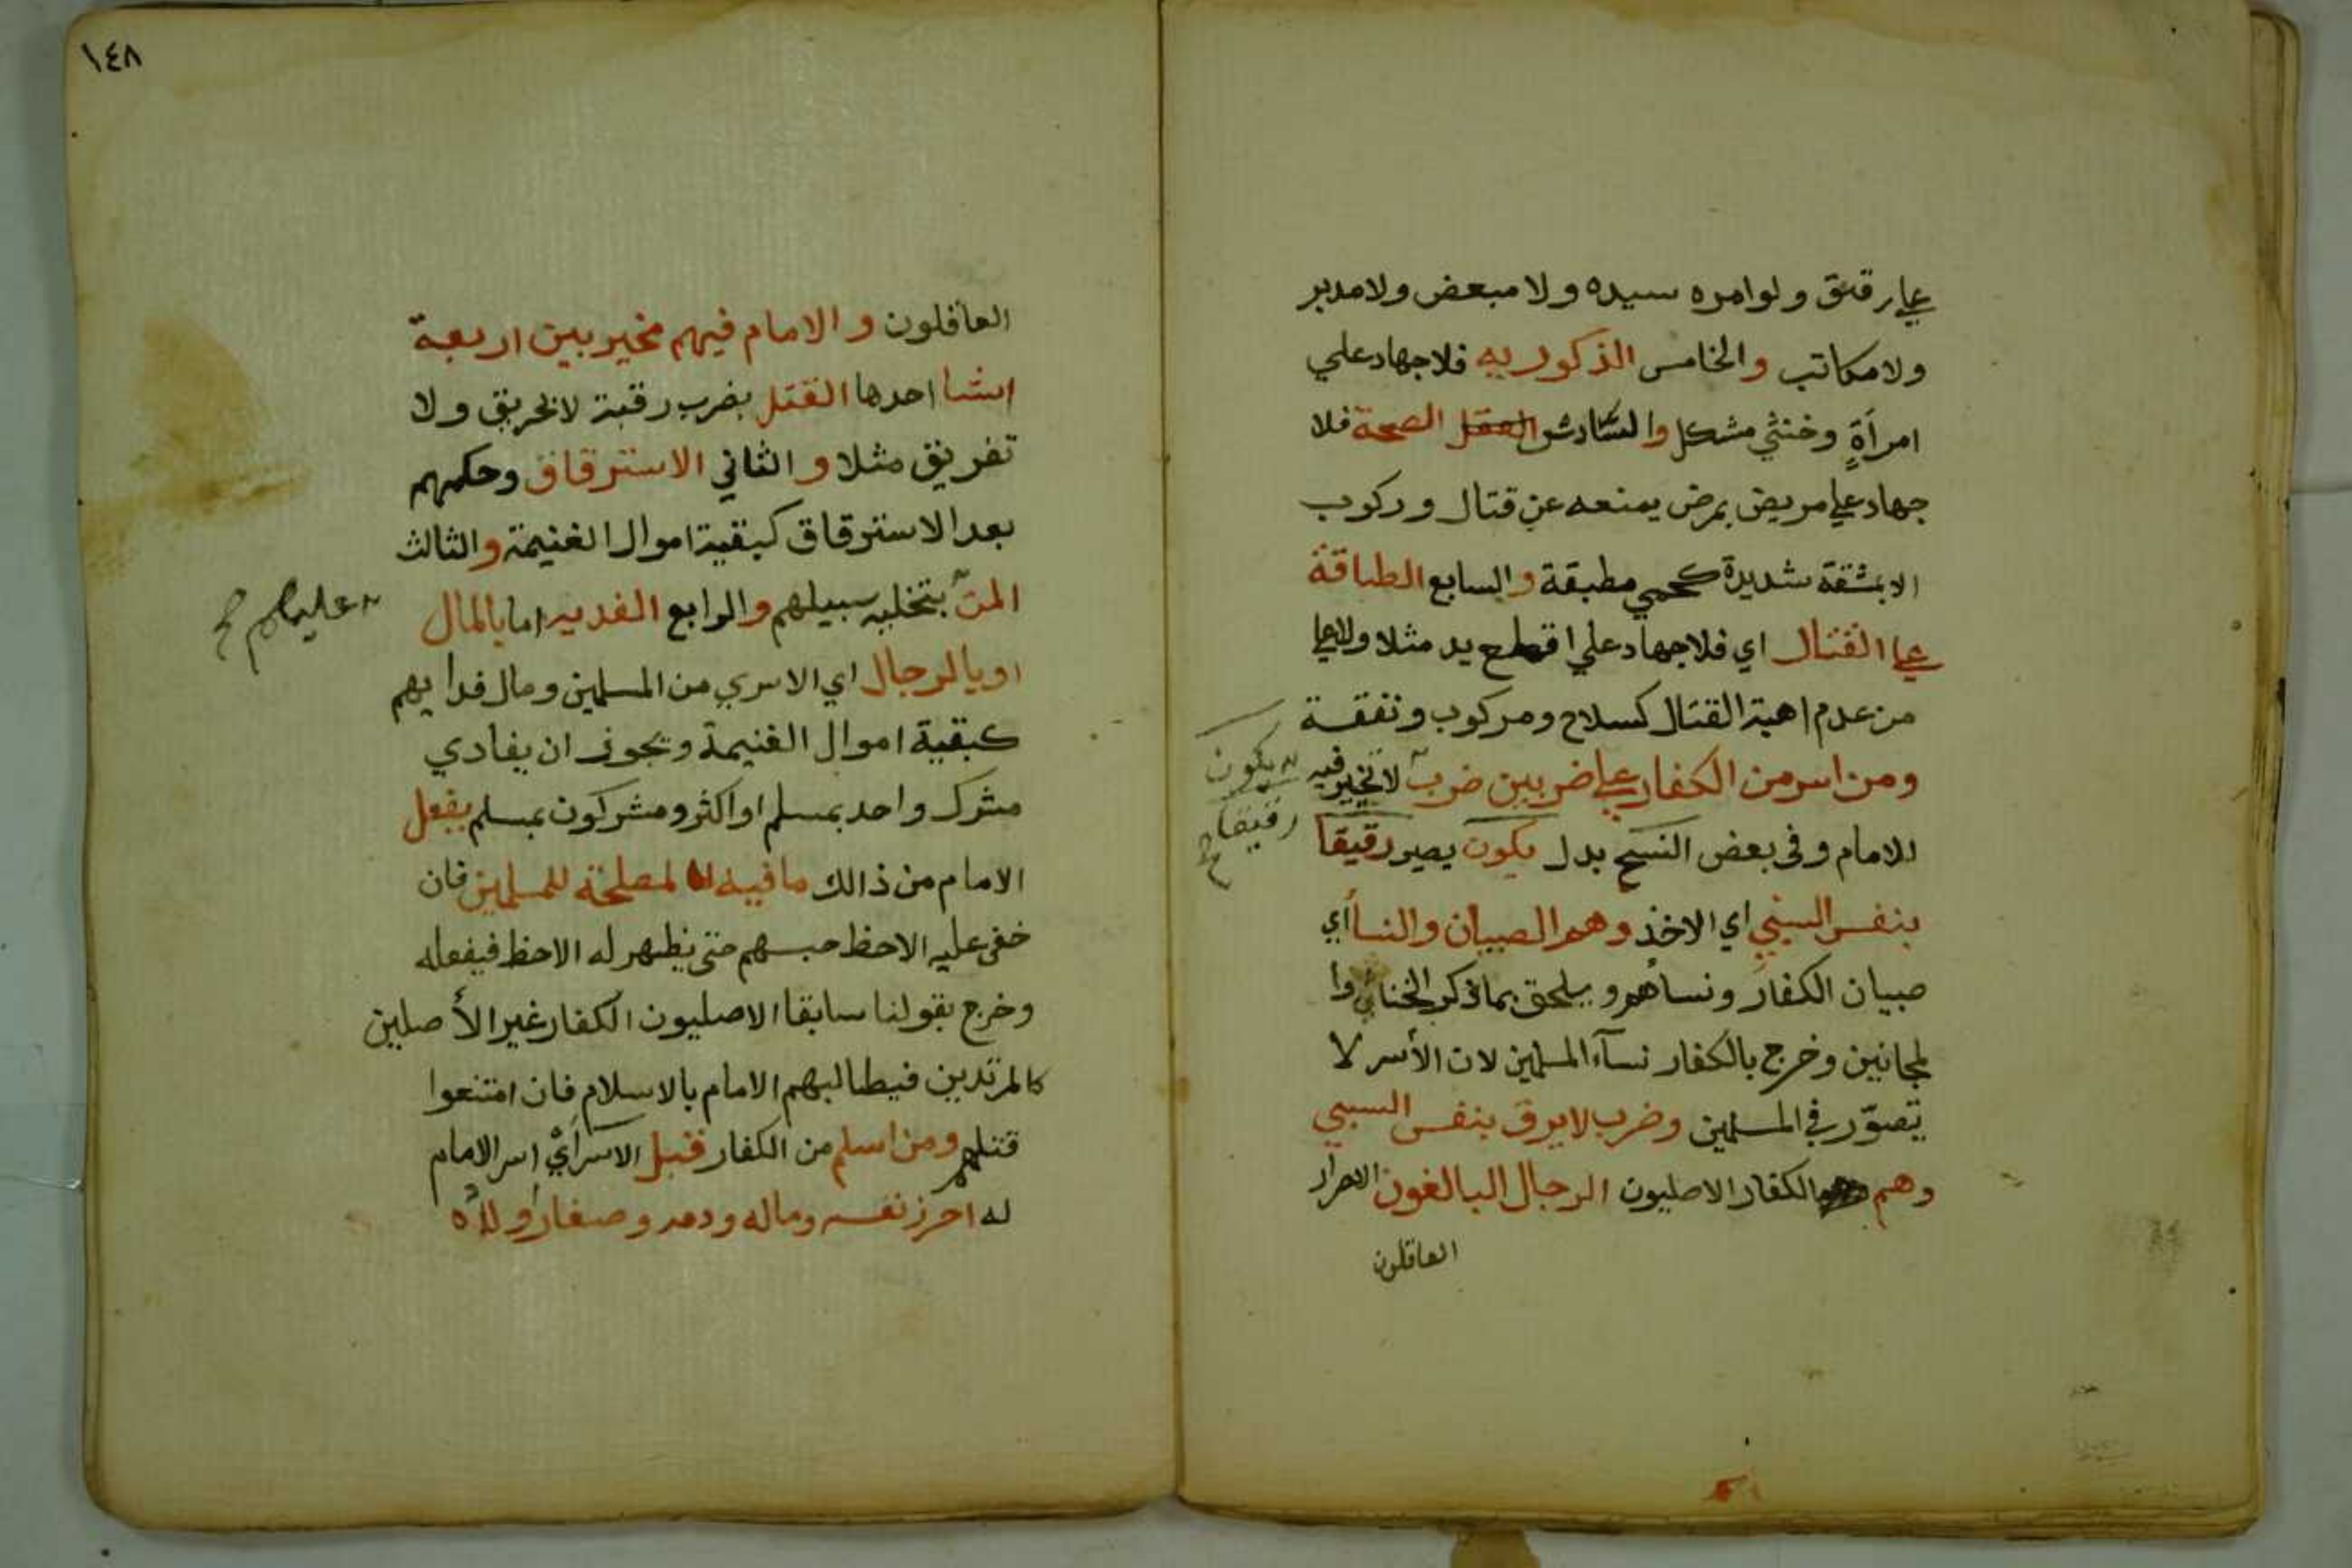 علي رقيق ولو امره سيده ولا مبعض ولا مدبر
ولا مكاتب والخامس الذكوريه فلا جهاد علي
امراة وخنثي مشكل والسادس العقل الصحة فلا
جهاد علي مريض بمرض يمنعه عن قتال وركوب
الا بمشقة شديدة كحمي مطبقة والسابع الطاقة
علي القتال اي فلا جهاد علي اقطع يد مثلا ولا علي
من عدم اهبة القتال كسلاح ومركوب ونفقة
ومن اسر من الكفار علي ضربين ضرب لا تخيير فيه
يكون
رقيقا
صح
للامام وفي بعض النسخ بدل يكون يصير رقيقا
بنفس السبي اي الاخذ وهم الصبيان والنسا أي
صبيان الكفار ونساهم ويلحق بما ذكر الخناثي وا
لمجانين وخرج بالكفار نسآء المسلمين لان الأسر لا
يتصوّر في المسلمين وضرب لا يرق بنفس السبي
وهم الكفار الاصليون الرجال البالغون الاحرار
العاقلون
١٤٨
العاقلون والامام فيهم مخير بين اربعة
اشيا احدها القتل بضرب رقبة لا تحريق ولا
تغريق مثلا والثاني الاسترقاق وحكمهم
بعد الاسترقاق كبقية اموال الغنيمة والثالث
المنّ بتخلية سبيلهم والرابع الفدية اما بالمال
عليهم صح
او بالرجال اي الاسري من المسلمين ومال فدايهم
كبقية اموال الغنيمة ويجوز ان يفادي
مشرك واحد بمسلم او اكثر ومشركون بمسلم يفعل
الامام من ذالك ما فيه المصلحة للمسلمين فان
خفي عليه الاحظ حبسهم حتي يظهر له الاحظ فيفعله
وخرج بقولنا سابقا الاصليون الكفار غير الأصلين
كالمرتدين فيطالبهم الامام بالاسلام فان امتنعوا
قتلهم ومن اسلم من الكفار قبل الاسر أي اسر الامام
له احرز نفسه وماله ودمه وصغار أولاده